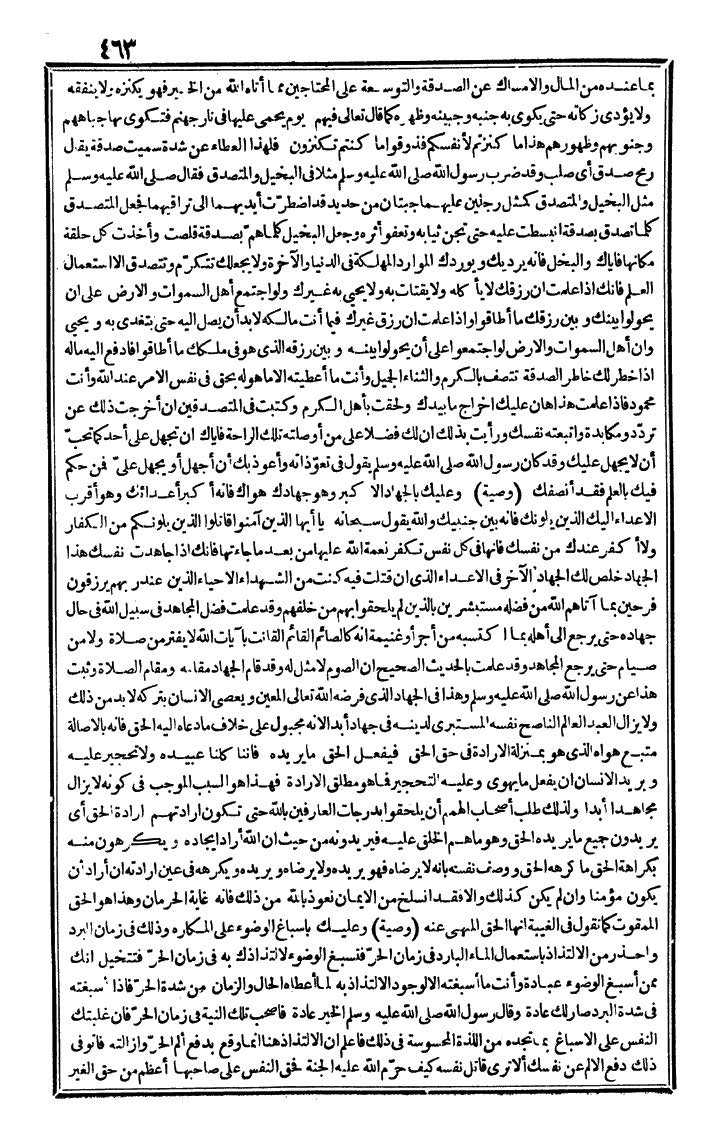 ٤٦٣
بما عنده من المال والامساك عن الصدقة والتوسعة على المحتاجين مما أتاه الله من الخير فهو يكنزه ولا ينفقه
ولا يؤدى زكاته حتى يكوى به جنبه وجبينه وظهره كما قال تعالى فيهم يوم يحمى عليها فى نار جهنم فتكوى بها جباههم
وجنوبهم وظهورهم هذا ما كنزتم لأنفسكم فذوقوا ما كنتم تكنزون فلهذا العطاء عن شدة سميت صدقة يقال
رمح صدق أى صلب وقد ضرب رسول الله صلى الله عليه وسلم مثلا فى البخيل والمتصدق فقال صلى الله عليه وسلم
مثل البخيل والمتصدق كمثل رجلين عليهما جبتان من حديد قد اضطرّت أيديهما الى تراقيهما فجعل المتصدق
كلما تصدق بصدقة انبسطت عليه حتى تجن ثيابه وتعفو أثره وجعل البخيل كلما همّ بصدقة قلصت وأخذت كل حلقة
مكانها فاياك والبخل فانه يرديك ويوردك الموارد المهلكة فى الدنيا والآخرة ولا يجعلك تتكرّم وتتصدق الا استعمال
العلم فانك اذا علمت ان رزقك لا يأكله ولا يقتات به ولا يحيى به غيرك ولو اجتمع أهل السموات والارض على ان
يحولوا بينك وبين رزقك ما أطاقوا واذا علمت ان رزق غيرك فيما أنت مالكه لابد أن يصل اليه حتى يتغذى به ويحيى
وان أهل السموات والارض لو اجتمعوا على أن يحولوا بينه وبين رزقه الذى هو فى ملكك ما أطاقوا فادفع اليه ماله
اذا خطر لك خاطر الصدقة تتصف بالكرم والثناء الجميل وأنت ما أعطيته الا ما هو له بحق فى نفس الامر عند الله وأنت
محمود فاذا علمت هذا هان عليك اخراج ما بيدك ولحقت بأهل الكرم وكتبت فى المتصدقين ان أخرجت ذلك عن
تردّد ومكابدة واتبعته نفسك ورأيت بذلك ان لك فضلا على من أوصلته تلك الراحة فاياك ان تجهل على أحد كما تحبّ
أن لا يجهل عليك وقد كان رسول الله صلى الله عليه وسلم يقول فى تعوّذاته وأعوذ بك أن أجهل أو يجهل علىّ فمن حكم
فيك بالعلم فقد أنصفك (وصية) وعليك بالجهاد الاكبر وهو جهادك هواك فانه أكبر أعدائك وهو أقرب
الاعداء اليك الذين يلونك فانه بين جنبيك والله يقول سبحانه يا أيها الذين آمنوا قاتلوا الذين يلونكم من الكفار
ولا أكفر عندك من نفسك فانها فى كل نفس تكفر نعمة الله عليها من بعد ما جاءتها فانك اذا جاهدت نفسك هذا
الجهاد خلص لك الجهاد الآخر فى الاعداء الذى ان قتلت فيه كنت من الشهداء الاحياء الذين عند ربهم يرزقون
فرحين بما آتاهم الله من فضله مستبشرين بالذين لم يلحقوا بهم من خلفهم وقد علمت فضل المجاهد فى سبيل الله فى حال
جهاده حتى يرجع الى أهله بما اكتسبه من أجر أو غنيمة انه كالصائم القائم القانت بآيات الله لا يفتر من صلاة ولا من
صيام حتى يرجع المجاهد وقد علمت بالحديث الصحيح ان الصوم لا مثل له وقد قام الجهاد مقامه ومقام الصلاة وثبت
هذا عن رسول الله صلى الله عليه وسلم وهذا فى الجهاد الذى فرضه الله تعالى المعين ويعصى الانسان بتركه لابد من ذلك
ولا يزال العبد العالم الناصح نفسه المستبرى لدينه فى جهاد أبدا لانه مجبول على خلاف ما دعاه اليه الحق فانه بالاصالة
متبع هواه الذى هو بمنزلة الارادة فى حق الحق فيفعل الحق ما يريده فاننا كلنا عبيده ولا تحجير عليه
ويريد الانسان ان يفعل ما يهوى وعليه التحجير فما هو مطلق الارادة فهذا هو السبب الموجب فى كونه لا يزال
مجاهدا أبدا ولذلك طلب أصحاب الهمم أن يلحقوا بدرجات العارفين بالله حتى تكون ارادتهم ارادة الحق أى
يريدون جميع ما يريده الحق وهو ما هم الخلق عليه فيريدونه من حيث ان الله أراد ايجاده ويكرهون منه
بكراهة الحق ما كرهه الحق ووصف نفسه بانه لا يرضاه فهو يريده ولا يرضاه ويريده ويكرهه فى عين ارادته ان أراد أن
يكون مؤمنا وان لم يكن كذلك والا فقد انسلخ من الايمان نعوذ بالله من ذلك فانه غاية الحرمان وهذا هو الحق
الممقوت كما نقول فى الغيبة انها الحق المنهى عنه (وصية) وعليك باسباغ الوضوء على المكاره وذلك فى زمان البرد
واحذر من الالتذاذ باستعمال الماء البارد فى زمان الحرّ فتسبغ الوضوء لالتذاذك به فى زمان الحرّ فتتخيل انك
ممن أسبغ الوضوء عبادة وأنت ما أسبغته الا لوجود الالتذاذ به لما أعطاه الحال والزمان من شدة الحرّ فاذا أسبغته
فى شدة البرد صار لك عادة وقال رسول الله صلى الله عليه وسلم الخير عادة فاصحب تلك النية فى زمان الحرّ فان غلبتك
النفس على الاسباغ بما تجده من اللذة المحسوسة فى ذلك فاعلم ان الالتذاذ هنا انما وقع بدفع ألم الحرّ وازالته فانو فى
ذلك دفع الالم عن نفسك ألا ترى قاتل نفسه كيف حرّم الله عليه الجنة فحق النفس على صاحبها أعظم من حق الغير